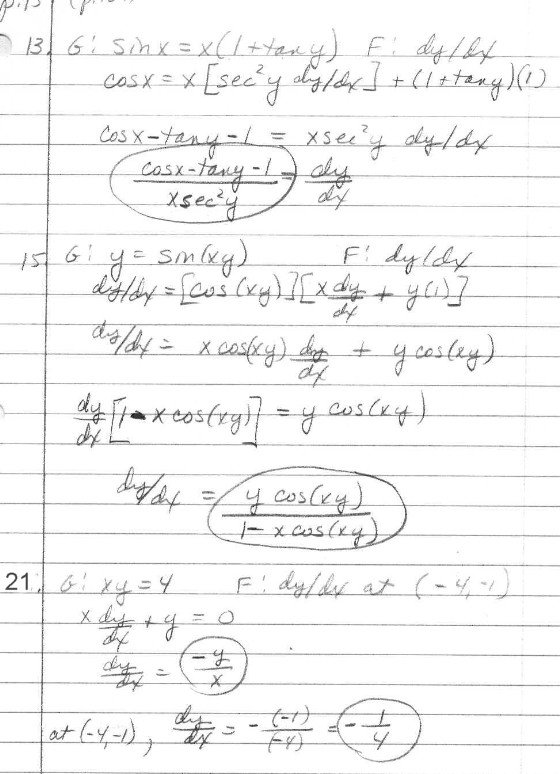 13. G: sinx = x(1+tany) F: dy/dx
cosx = x[sec²y dy/dx] + (1+tany)(1)
cosx-tany-1 = xsec²y dy/dx
cosx-tany-1 / xsec²y = dy/dx
15. G: y = sin(xy) F: dy/dx
dy/dx = [cos(xy)][x dy/dx + y(1)]
dy/dx = x cos(xy) dy/dx + y cos(xy)
dy/dx [1 - x cos(xy)] = y cos(xy)
dy/dx = y cos(xy) / 1 - x cos(xy)
21. G: xy = 4 F: dy/dx at (-4,-1)
x dy/dx + y = 0
dy/dx = -y/x
at (-4,-1), dy/dx = - (-1)/(-4) = - 1/4